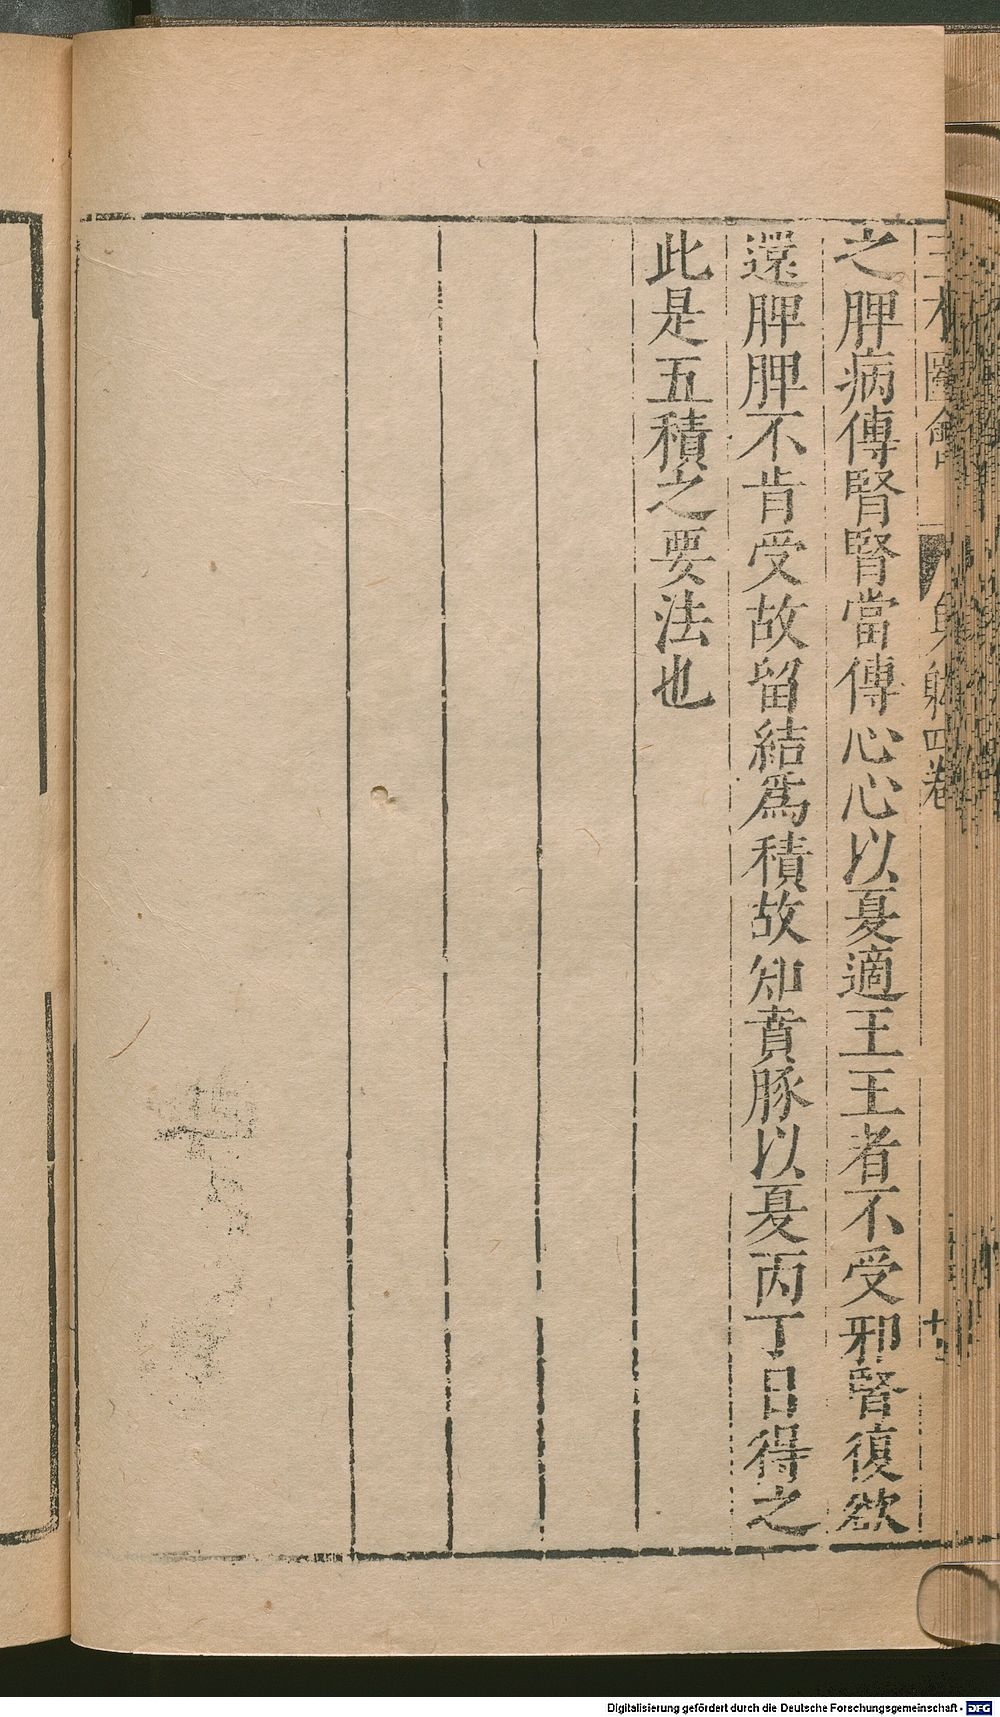 三才圖會 身體四卷 十
之脾病傳腎腎當傳心心以夏適王王者不受邪腎復欲
還脾脾不肯受故留結爲積故知賁豚以夏丙丁日得之
此是五積之要法也
Digitalisierung gefördert durch die Deutsche Forschungsgemeinschaft - DFG